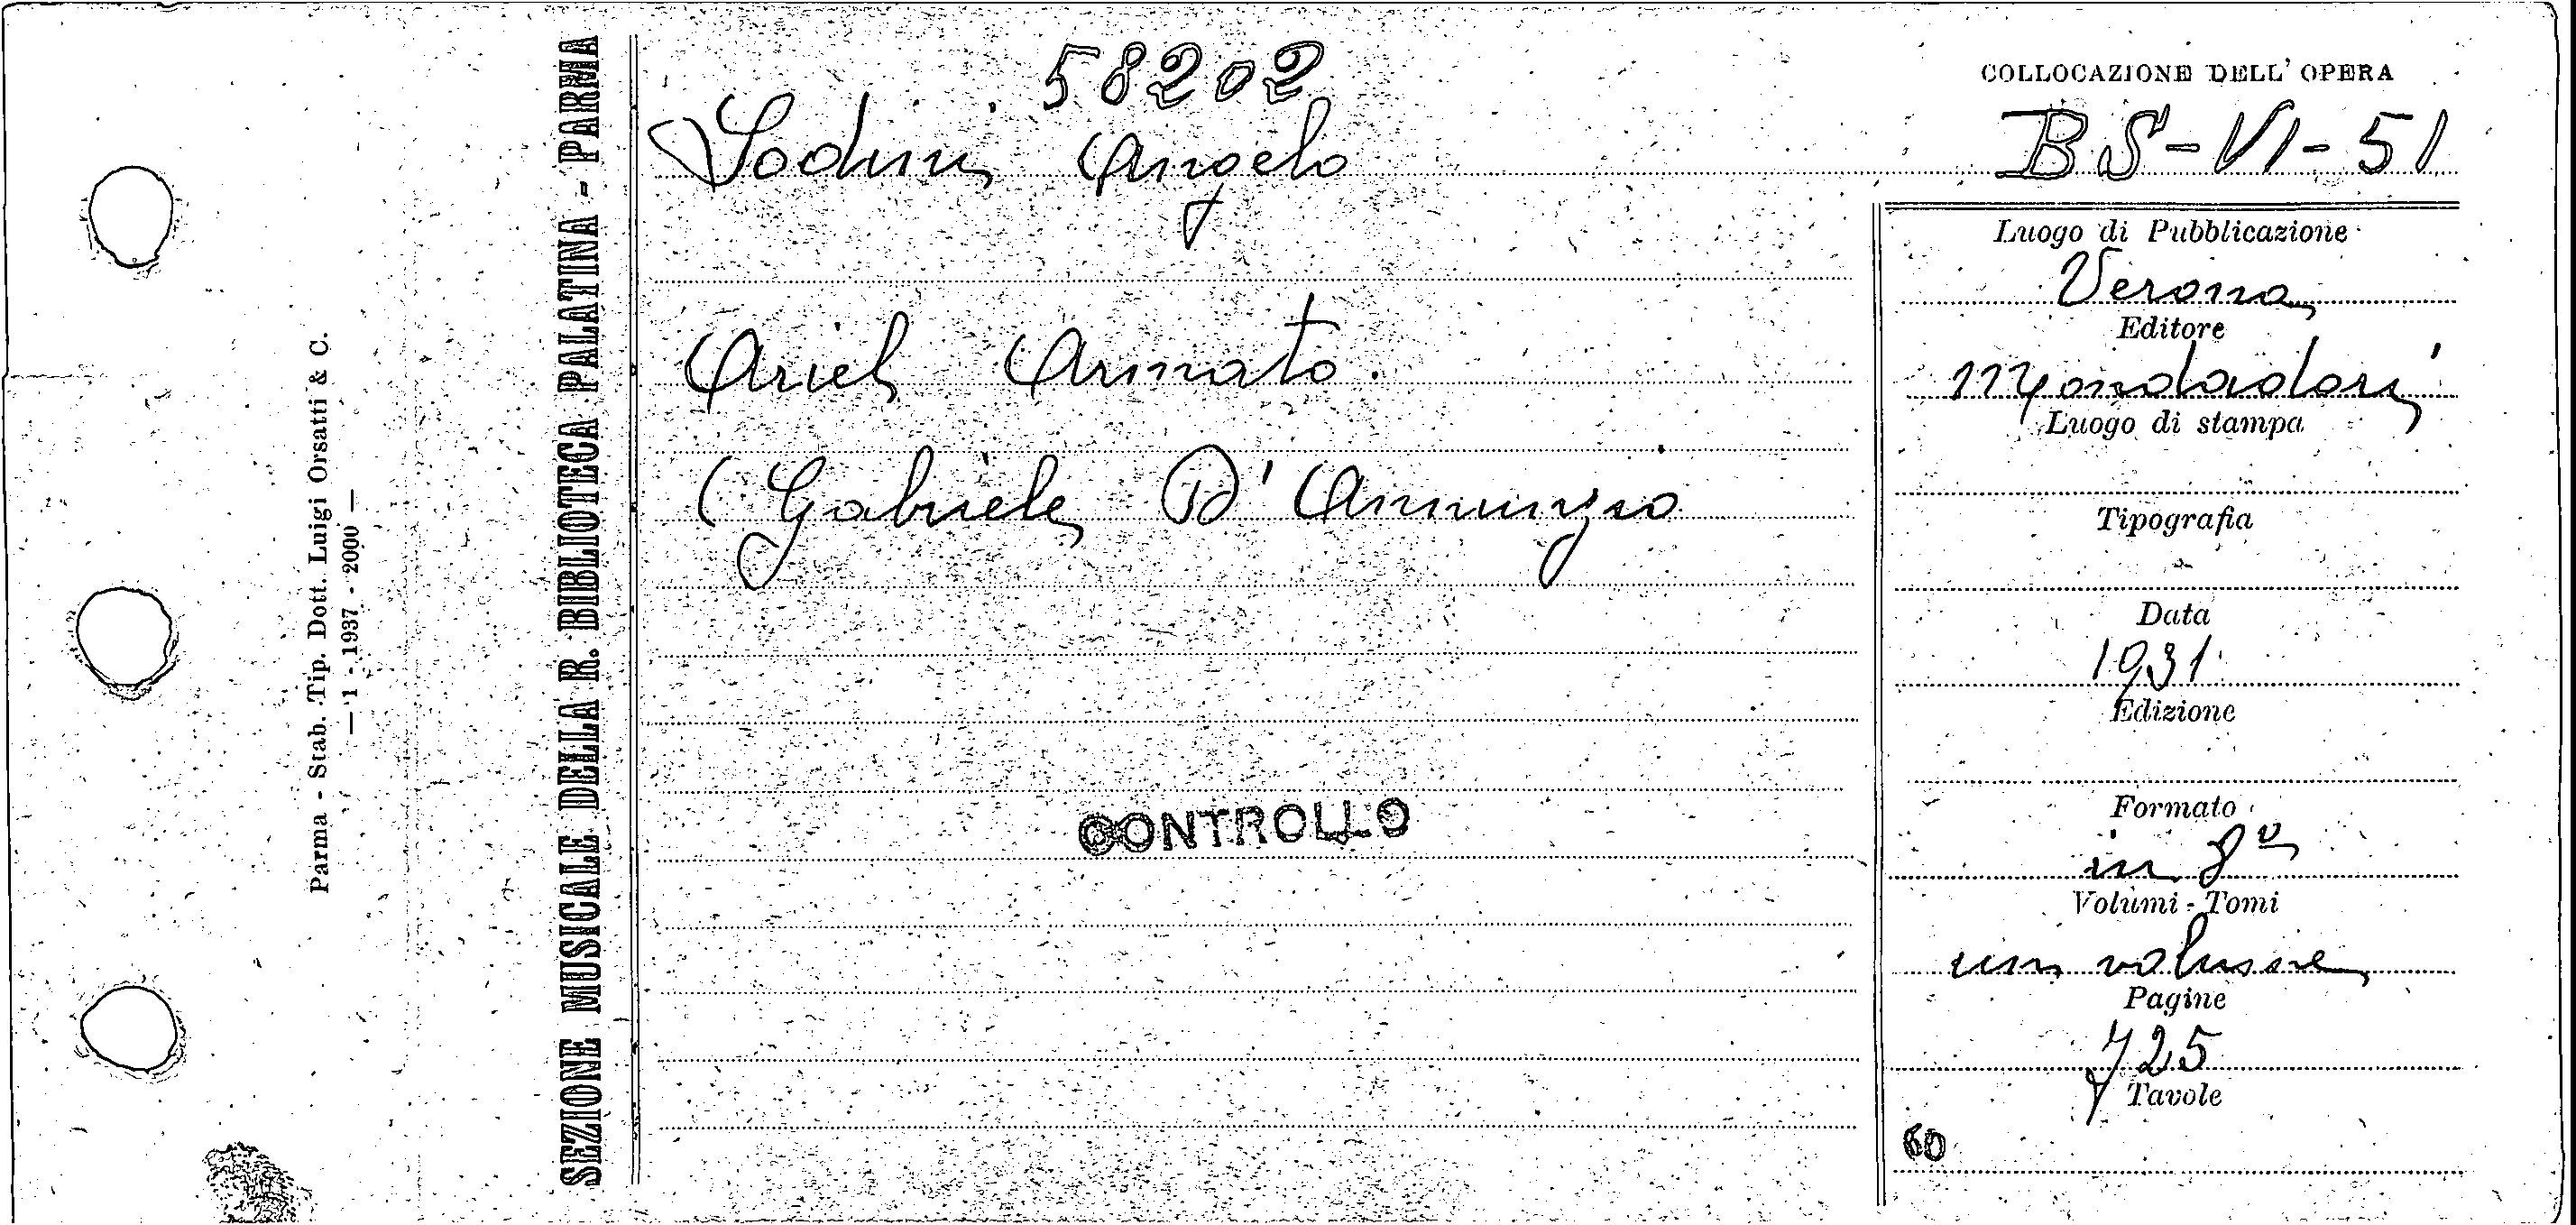 58202
Sodini Angelo
Ariel Armato.
(Gabriele D'Annunzio
CONTROLLO
COLLOCAZIONE DELL' OPERA
BS-VI-51
Luogo di Pubblicazione
Verona
Editore
Mondadori
Luogo di stampa
Tipografia
Data
1931
Edizione
Formato
in 8º
Volumi - Tomi
un volume
Pagine
725
Tavole
60
SEZIONE MUSICALE DELLA R. BIBLIOTECA PALATINA - PARMA
Parma - Stab. Tip. Dott. Luigi Orsatti & C.
— 1 - 1937 - 2000 —